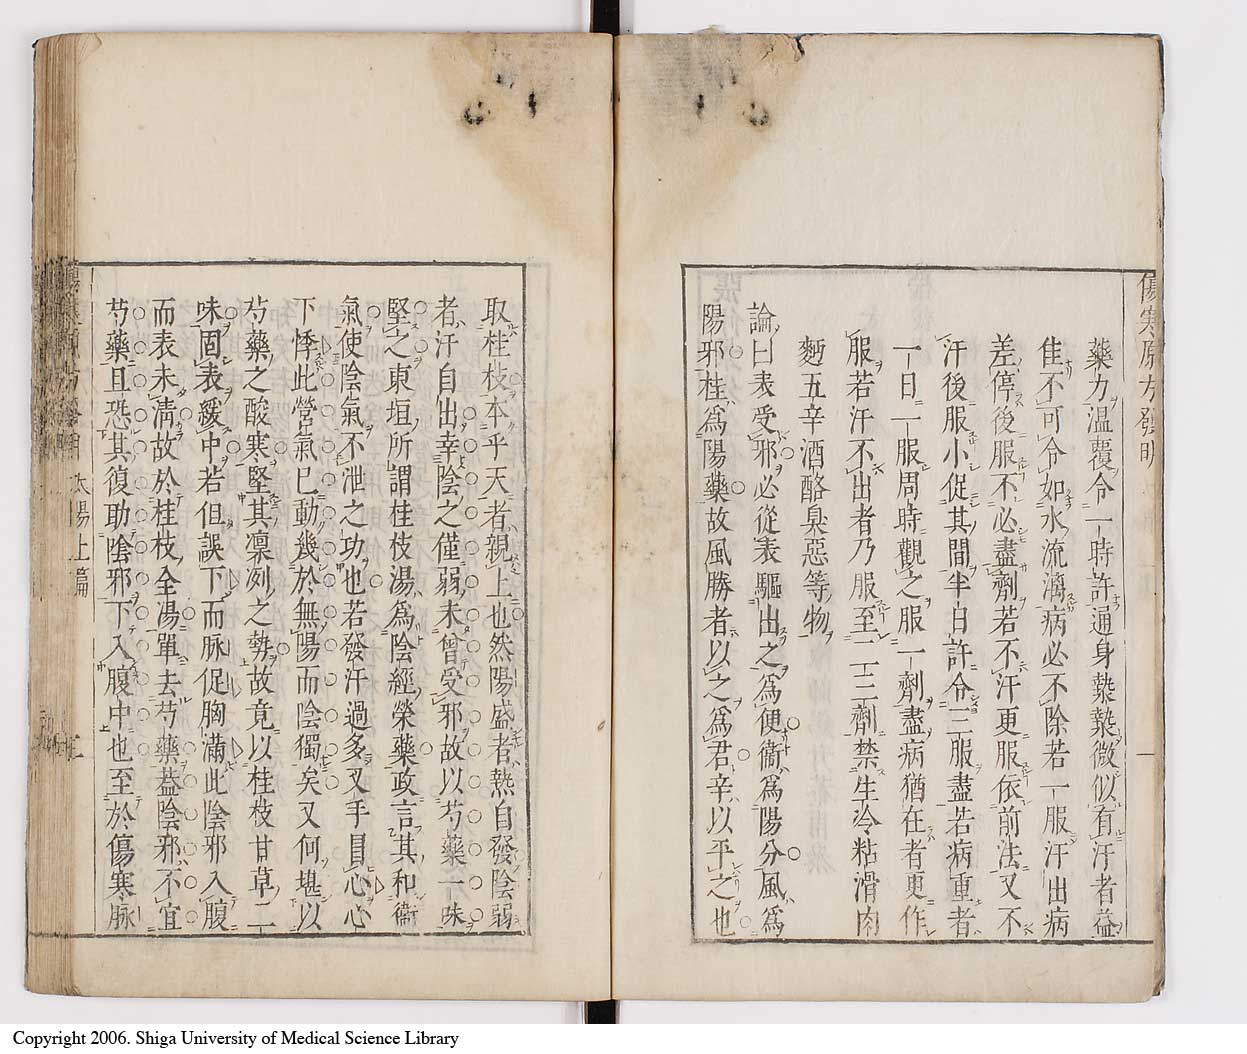 傷寒原方發明
藥力温覆令一時許通身漐漐微似有汗者益
佳不可令如水流漓病必不除若一服汗出病
差停後服不必盡劑若不汗更服依前法又不
汗後服小促其間半日許令三服盡若病重者
一日一服周時觀之服一劑盡病猶在者更作
服若汗不出者乃服至二三劑禁生冷粘滑肉
麪五辛酒酪臭惡等物
論曰表受邪必從表驅出之為便衞為陽分風為
陽邪桂為陽藥故風勝者以之為君辛以平之也
取桂枝本乎天者親上也然陽盛者熱自發陰弱
者汗自出幸陰之僅弱未曾受邪故以芍藥一味
堅之東垣所謂桂枝湯為陰經榮藥政言其和衞
氣使陰氣不泄之功也若發汗過多叉手冒心心
下悸此營氣已動幾於無陽而陰獨矣又何堪以
芍藥之酸寒堅其凛冽之勢故竟以桂枝甘草二
味固表緩中若但誤下而脉促胸滿此陰邪入腹
而表未清故於桂枝全湯單去芍藥葢陰邪不宜
芍藥且恐其復助陰邪下入腹中也至於傷寒脉
太陽上篇
Copyright 2006. Shiga University of Medical Science Library